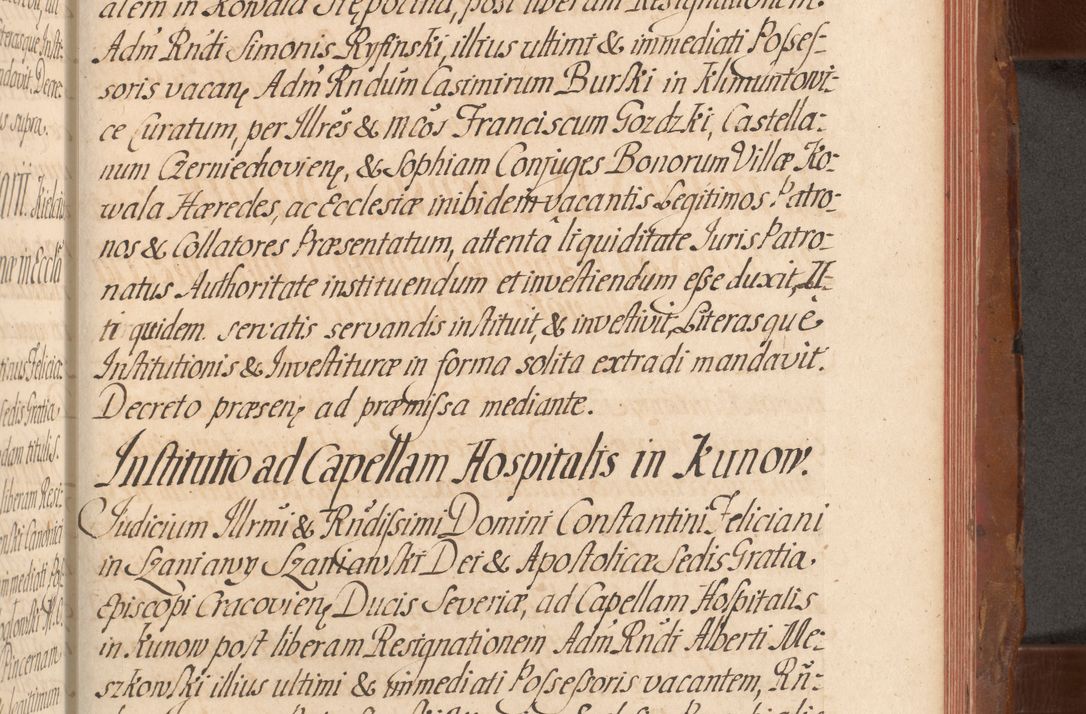 alem in Kowala Stępocina, post liberam Resignationem
Adm Rndi Simonis Ryfinski, illius ultimi & immediati Posses-
soris vacan. Adm Rndum Casimirum Burski in Klimuntowi-
ce Curatum, per Illres & Mcos Franciscum Gozdzki, Castella-
num Czerniechovien. & Sophiam Conjuges Bonorum Villæ Ko-
wala Hæredes, ac Ecclesiæ inibidem vacantis Legitimos Patro-
nos & Collatores Præsentatum, attentâ liquiditate Juris Patro-
natus Authoritate instituendum et investiendum esse duxit, U-
ti quidem servatis servandis instituit, & investivit, Literasque
Institutionis & Investituræ in forma solita extradi mandavit.
Decreto præsen. ad præmissa mediante.
Institutio ad Capellam Hospitalis in Kunow.
Judicium Illrmi & Rndissimi Domini Constantini Feliciani
in Szaniawy Szaniawski Dei & Apostolicæ Sedis Gratia
Episcopi Cracovien. Ducis Severiæ, ad Capellam Hospitalis
in Kunow post liberam Resignationem Adm Rndi Alberti Me-
szkowski illius ultimi & immediati Possessoris vacantem, Rñ-